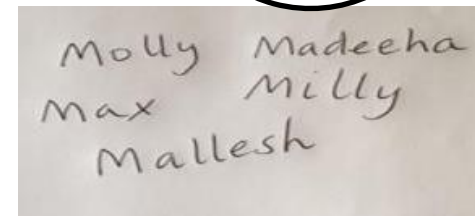 Molly Madeeha
Max Milly
Mallesh